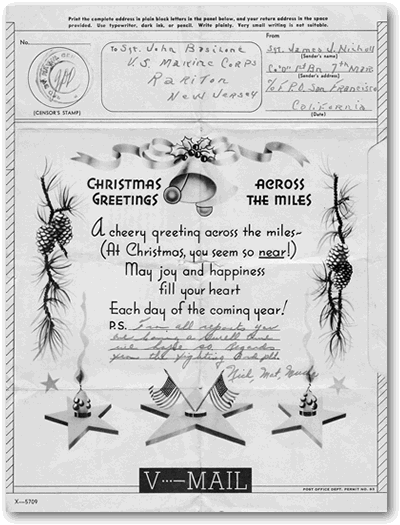 Print the complete address in plain block letters in the panel below, and your return address in the space
provided. Use typewriter, dark ink, or pencil. Write plainly. Very small writing is not suitable.
No.
(CENSOR'S STAMP)
To Sgt. John Basilone
U.S. Marine Corps
Raritan
New Jersey
From
Sgt. James J. Nickoll
(Sender's name)
Co "D" 1st Bn 7th Mar
(Sender's address)
c/o F.P.O. San Francisco
California
(Date)
CHRISTMAS GREETINGS
ACROSS THE MILES
A cheery greeting across the miles~
(At Christmas, you seem so near!)
May joy and happiness
fill your heart
Each day of the coming year!
P.S. From all reports you
are having a swell time
we hope so. Regards
from the fighting 3rd plt.
Nick
V···—MAIL
POST OFFICE DEPT. PERMIT NO.
X—5709